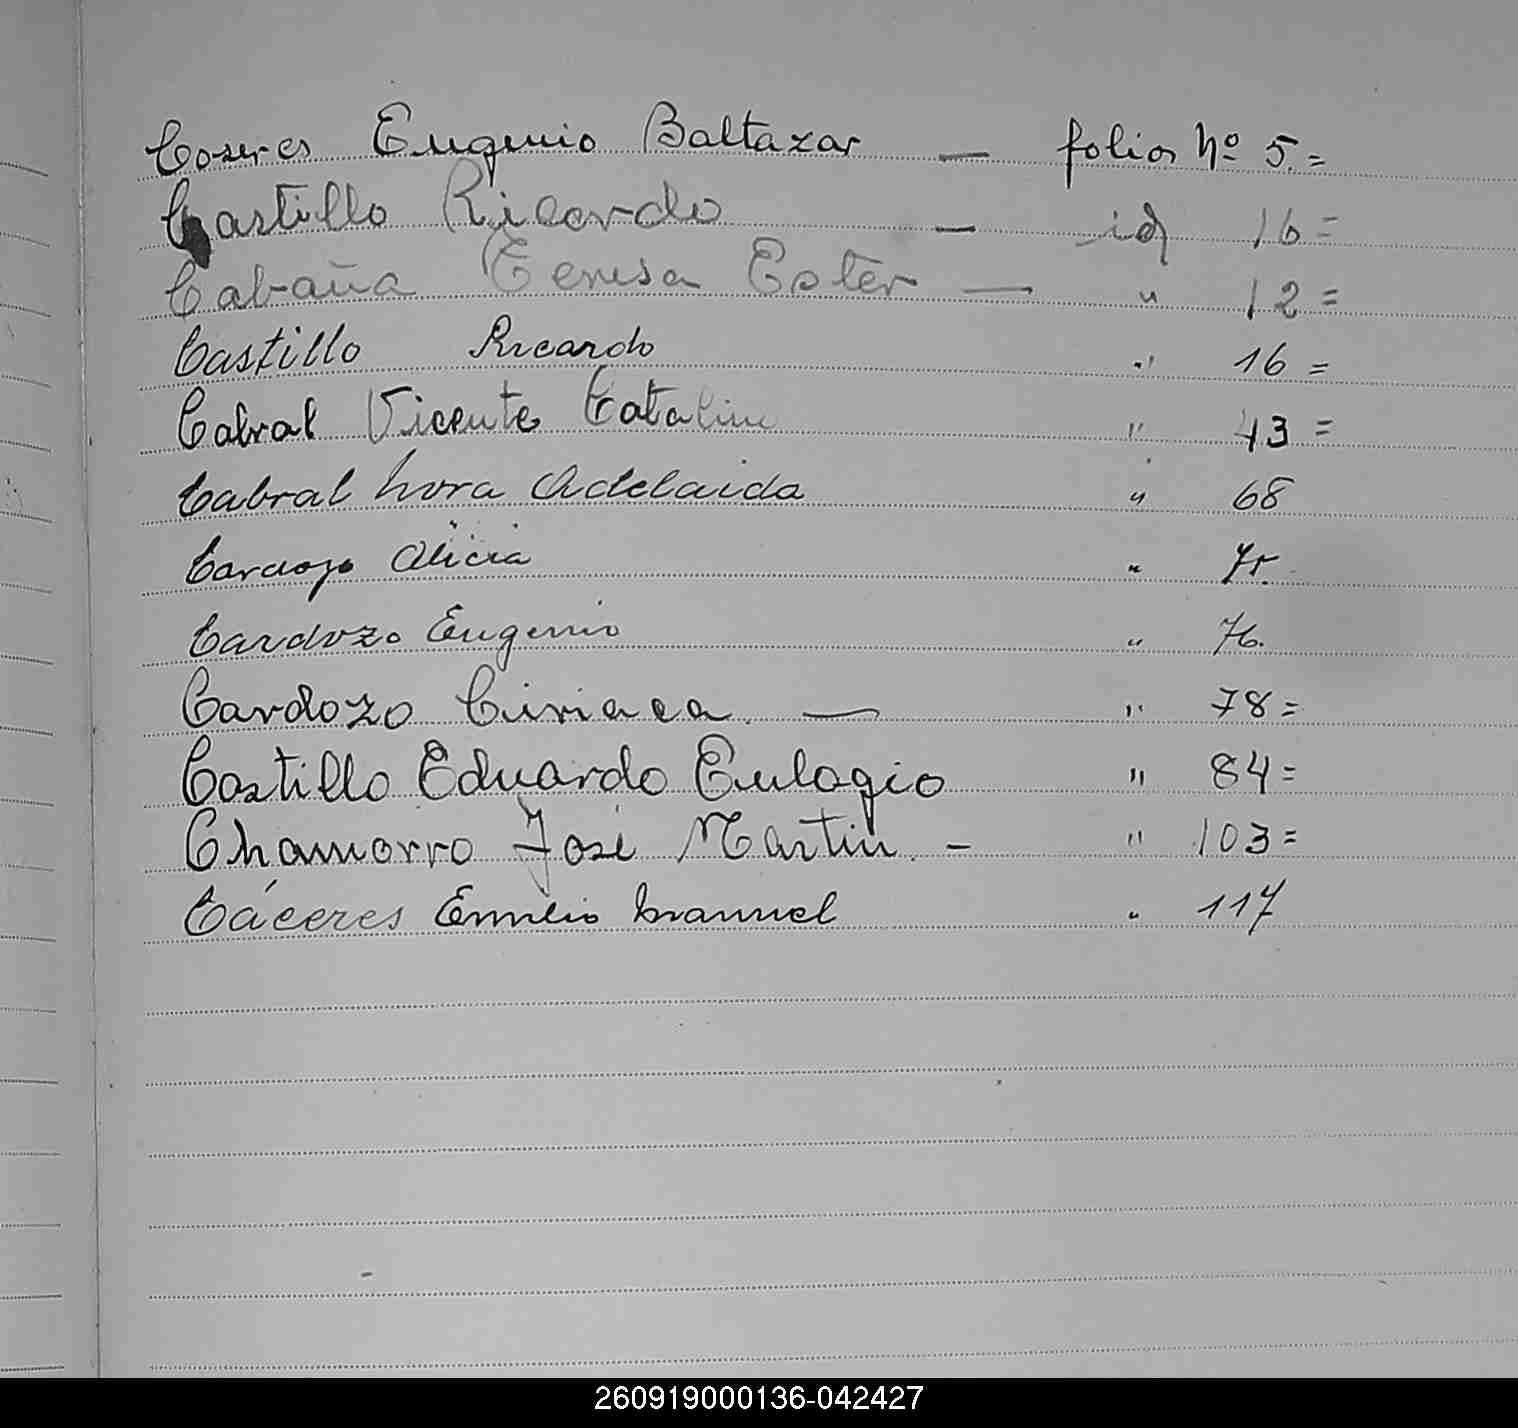 Coseres Eugenio Baltazar — folios Nº 5.=
Castillo Ricardo — id 16=
Cabaña Teresa Ester — " 12=
Castillo Ricardo " 16=
Cabral Vicente Catalin " 43=
Cabral Nora Adelaida " 68
Cardozo Alicia " 75.
Cardozo Eugenio " 76.
Cardozo Ciriaca. — " 78=
Castillo Eduardo Eulogio " 84=
Chamorro José Martin. - " 103=
Cáceres Emilio Manuel " 117
260919000136-042427